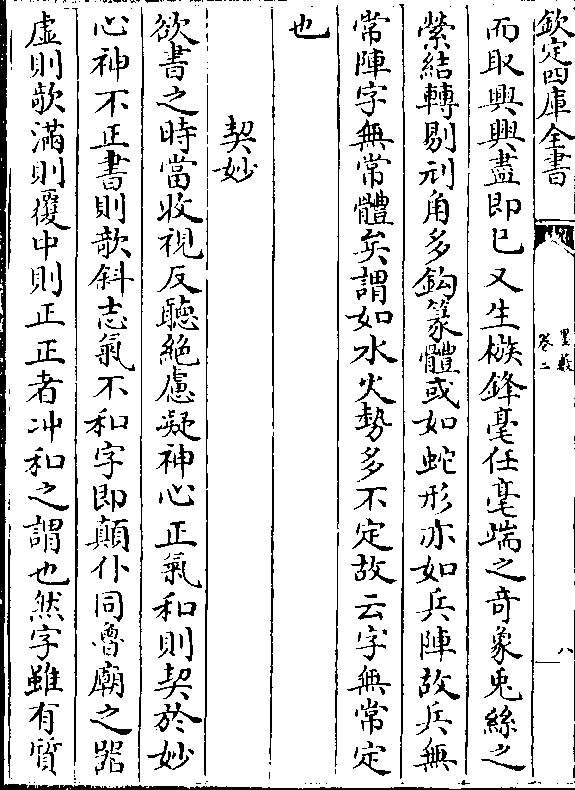 欽定四庫全書
墨藪
卷二
八
而取興興盡即已又生㯲鋒毫任毫端之奇象兎絲之
縈結轉剔刓角多鈎篆體或如蛇形亦如兵陣故兵無
常陣字無常體矣謂如水火勢多不定故云字無常定
也
契妙
欲書之時當收視反聽絶慮凝神心正氣和則契於妙
心神不正書則欹斜志氣不和字即顛仆同魯廟之器
虛則欹滿則覆中則正正者冲和之謂也然字雖有質